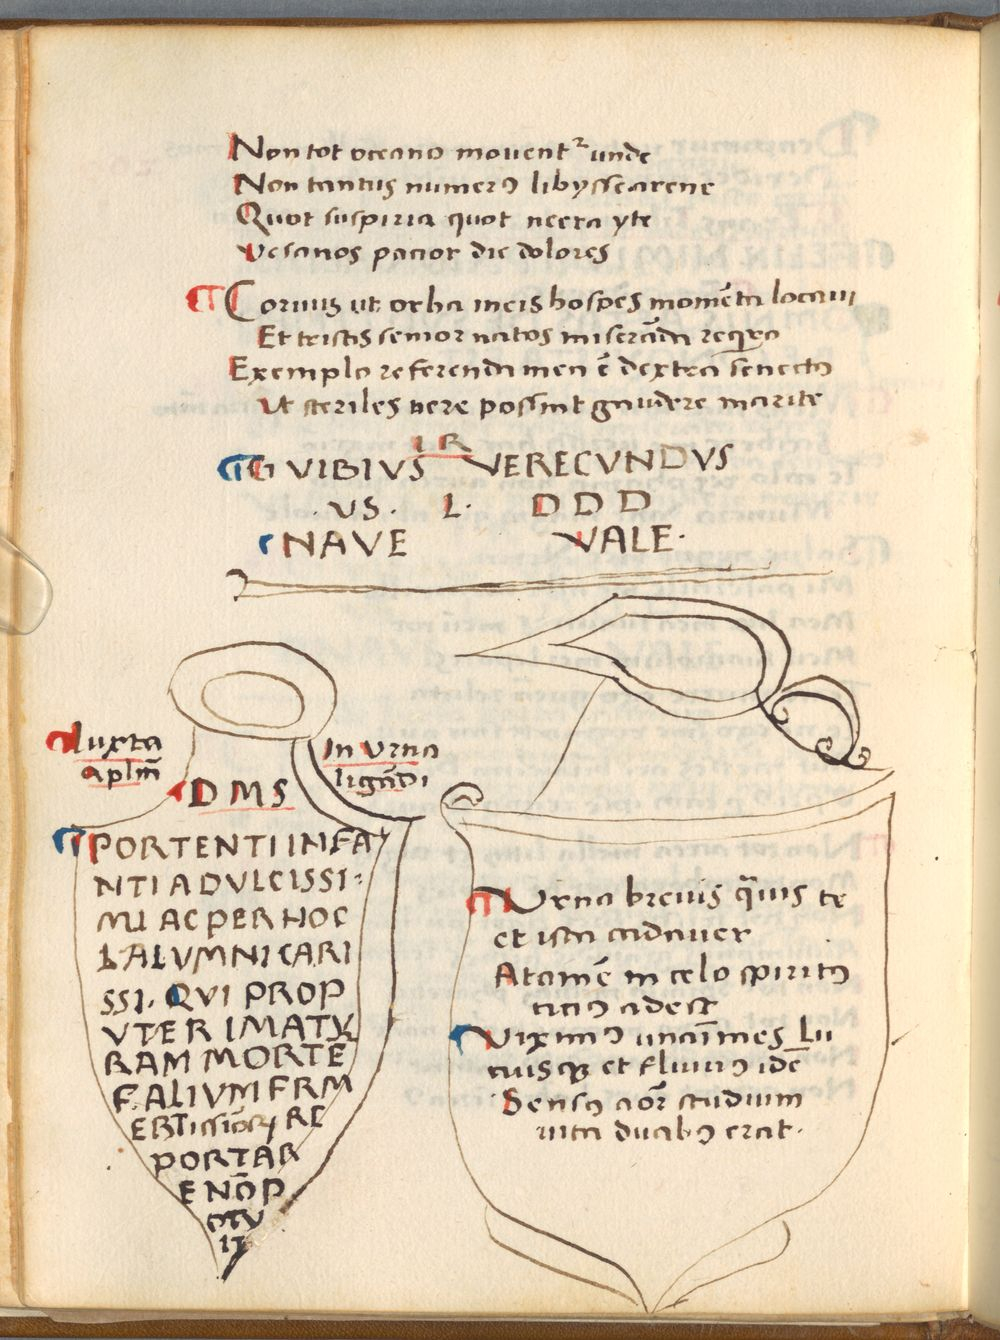 Non tot oceano mouentᷣ unde
Non tantus numerꝰ libysse arene
Quot suspiria quot necta yte
Vesanos patior die dolores
Coruus ut orba meis hospes momēta locaui
Et tristis semor natos miserāda reqro
Exemplo referenda mea ē dextea senectꝰ
Ut steriles uere possint gaudere marite
I R
G VIBIVS VERECVNDVS
. VS . L . D D D
NAVE VALE.
Iuxta
aplm̄
In Vrna
ligādi
D M S
PORTENTI INFA
NTI ADVLCISSI:
MI AC PER HOC
LALVMNI CARI
SSI. QVI PROP
VTER IMATV
RAM MORTĒ
FALIVM FRM
ERTissiō RE
PORTAR
E NŌ P
OTV
IT
Vrna breuis q̄uis te
et ista cadauer
Atamē in celo spiritꝰ
adest
Viximꝰ unaīmes Lu
ciusqꝫ et Flauiꝰ idē
Sensꝰ aor̄ studium
uita duabꝰ erat.